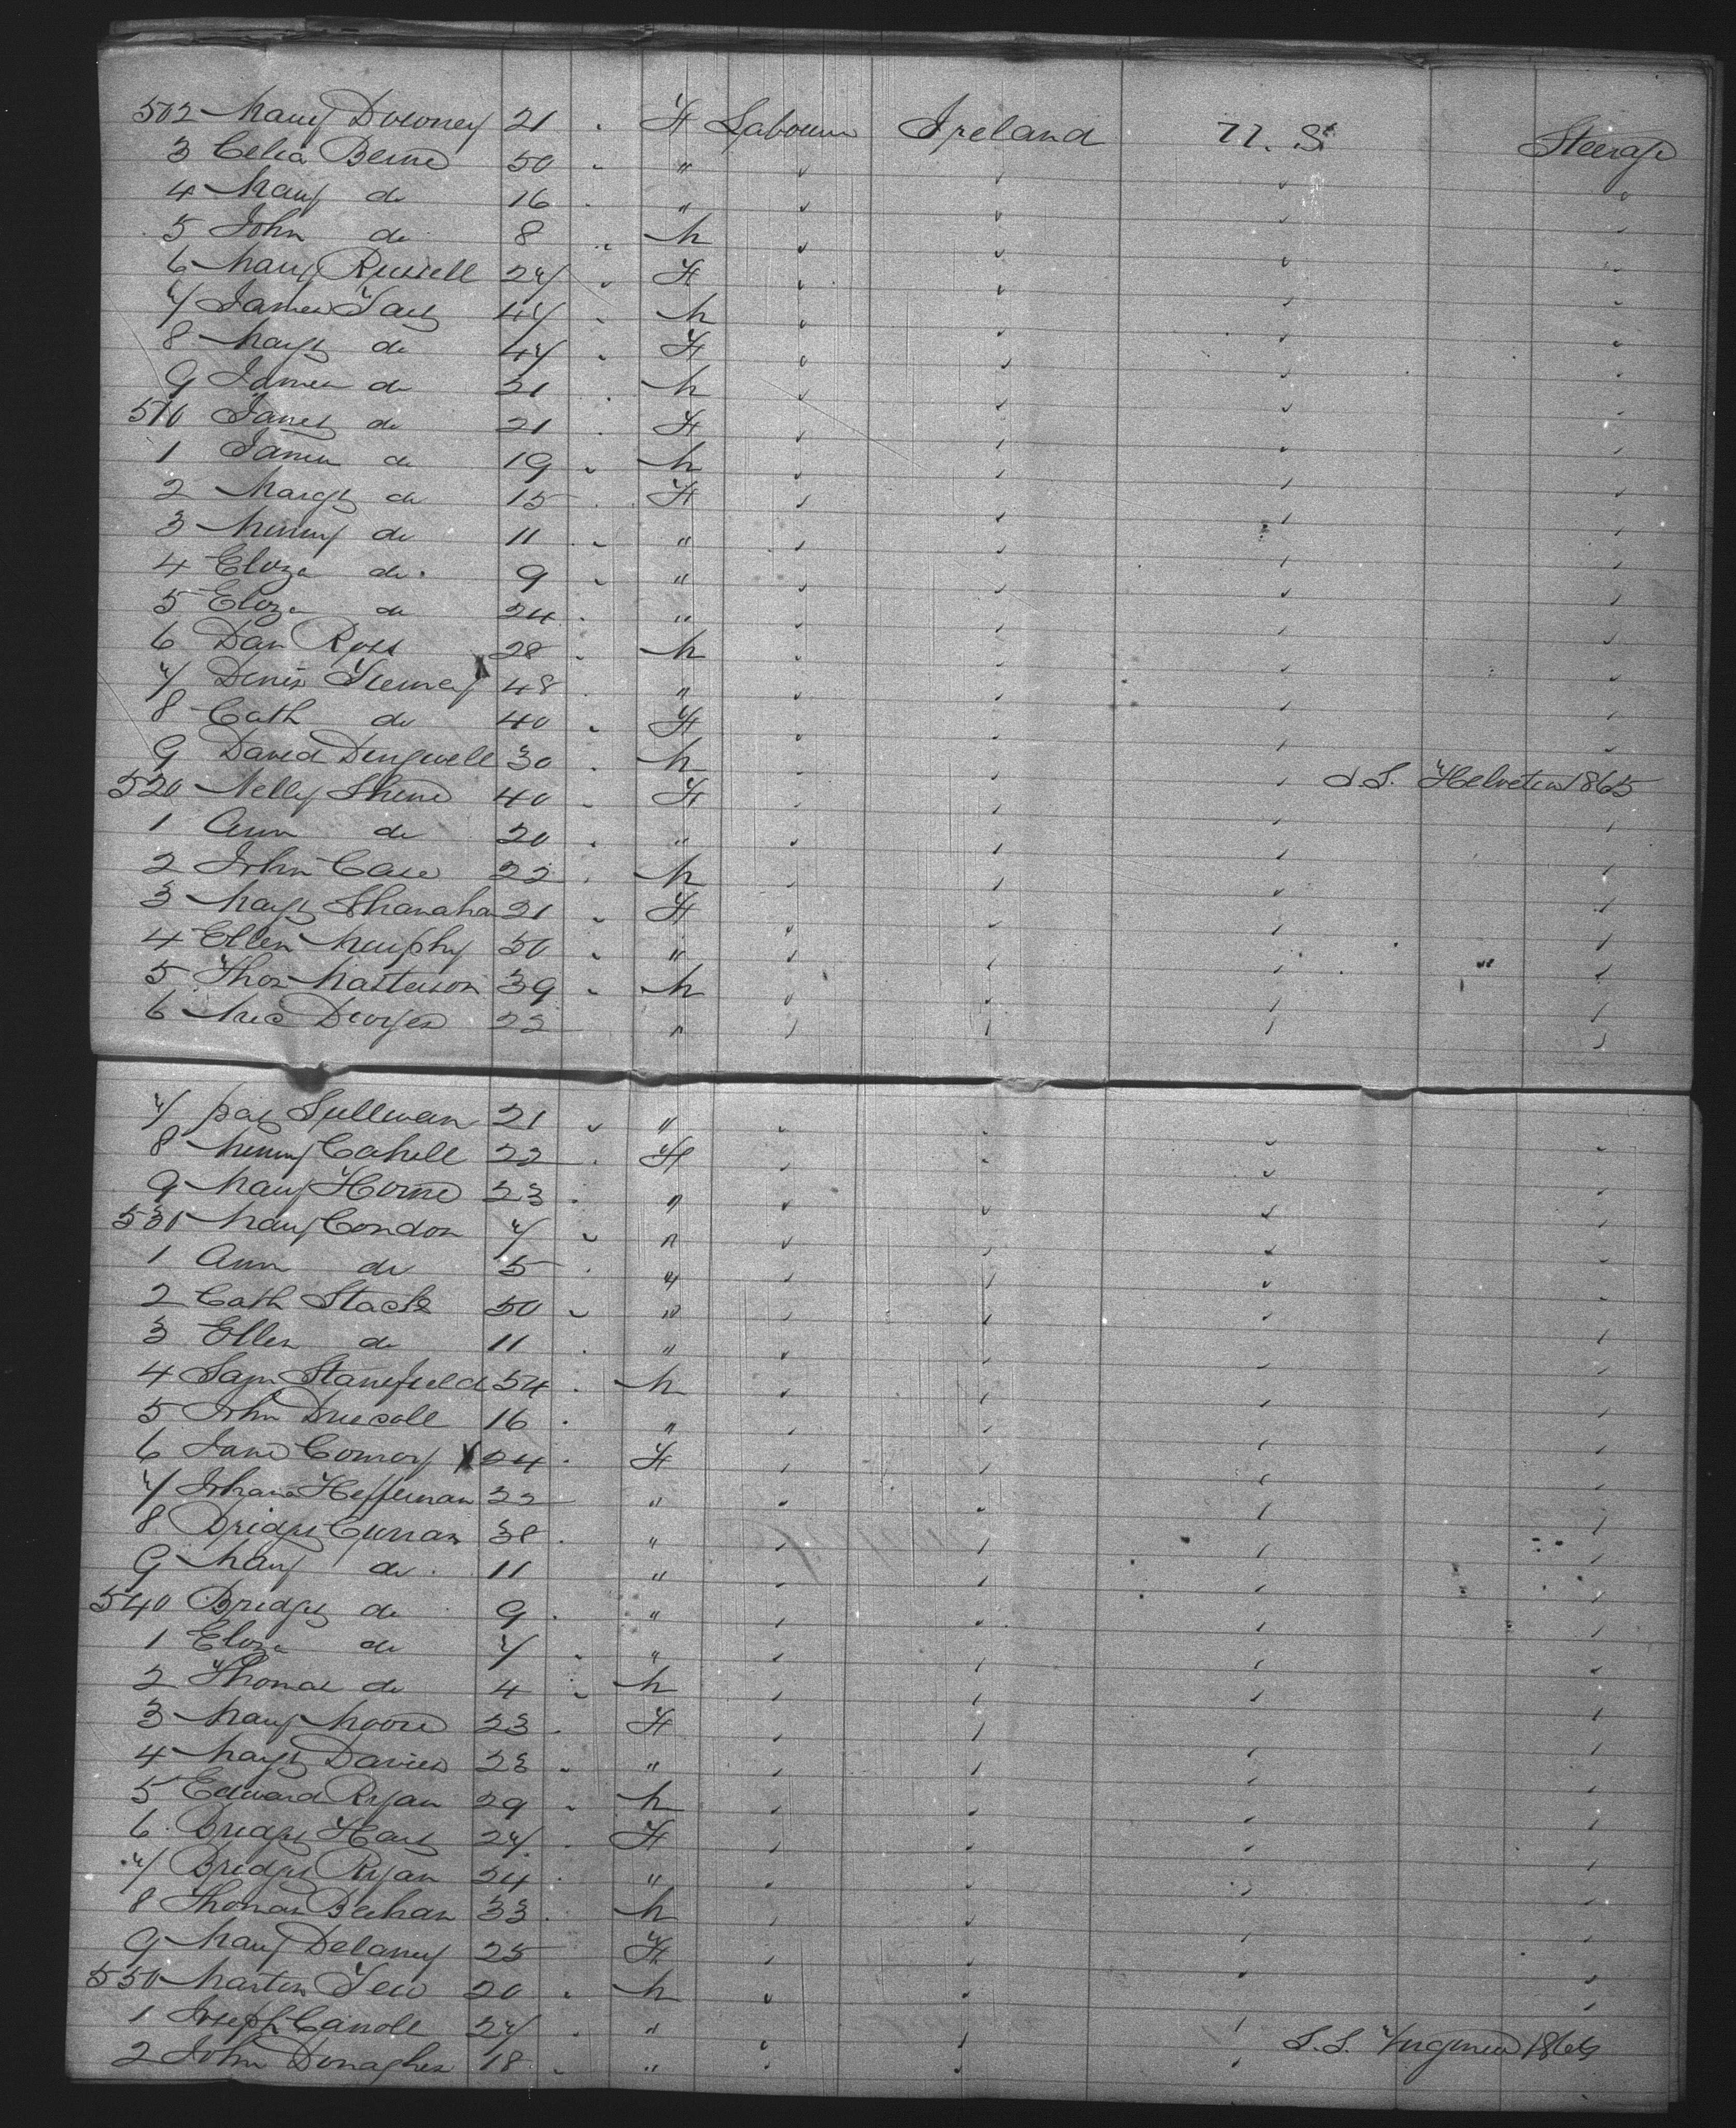 502 Mary Downey 21 " F Labourer Ireland U.S. Steerage
3 Celia Beirne 50 " " " " " "
4 Mary do 16 " " " " " "
5 John do 8 " M " " " "
6 Mary Russell 27 " F " " " "
7 James 47 " M " " " "
8 Margt do 47 " F " " " "
9 James do 21 " M " " " "
510 Janet do 21 " F " " " "
1 James do 19 " M " " " "
2 Margt do 15 " F " " " "
3 Minny do 11 " " " " " "
4 Eliza do 9 " " " " " "
5 Eliza do 24 " " " " " "
6 Dan Ross 28 " M " " " "
7 Denis 48 " " " " " "
8 Cath do 40 " F " " " "
9 David Dingwell 30 " M " " " S.S. Helvetia 1865
520 Nelly Shine 40 " F " " " "
1 Ann do 20 " " " " " "
2 John Case 22 " M " " " "
3 Margt Shanahan 21 " F " " " "
4 Ellen Murphy 50 " " " " " "
5 Thos Masterson 39 " M " " " "
6 22 " " " " "
7 Pat Sullivan 21 " " " " " "
8 Minny Cahill 22 " F " " " "
9 Mary Horne 23 " " " " " "
530 Mary Condon 7 " " " " " "
1 Ann do 5 " " " " " "
2 Cath Stack 50 " " " " " "
3 Ellen do 11 " " " " " "
4 Saml Stanefield 54 " M " " " "
5 John Driscoll 16 " " " " " "
6 Jane Conroy X 24 " F " " " "
7 Johana Heffernan 22 " " " " "
8 Bridgt Curran 38 " " " " " "
9 Mary do 11 " " " " "
540 Bridgt do 9 " " " " " "
1 Eliza do 7 " " " " " "
2 Thomas do 4 " M " " " "
3 Mary Moore 23 " F " " " "
4 Margt Davies 23 " " " " " "
5 Edward Ryan 29 " M " " " "
6 Bridgt Hart 27 " F " " " "
7 Bridgt Ryan 24 " " " " " "
8 Thomas Behan 33 " M " " " "
9 Mary Delaney 25 F " " " "
550 Martin 20 " M " " " "
1 Joseph Carroll 27 " " " " "
2 John Donagher 18 " " " " " S.S. Virginia 1866